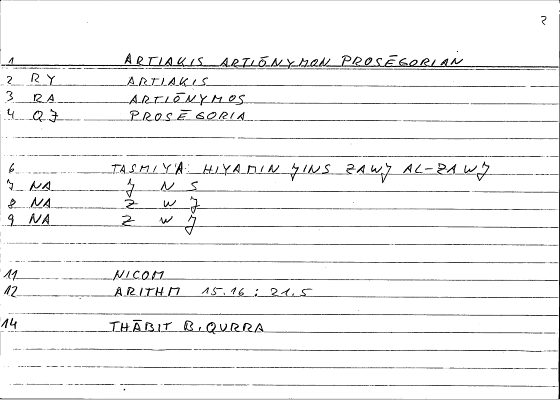 2
1 ARTIAKIS ARTIŌNYMON PROSĒGORIAN
2 RY ARTIAKIS
3 RA ARTIŌNYMOS
4 QJ PROSĒGORIA
6 TASMIYA HIYAMIN JINS ZAWJ AL-ZAWJ
7 NA J N S
8 NA Z W J
9 NA Z W J
11 NICOM
12 ARITHM 15.16 : 21.5
14 THĀBIT B. QURRA